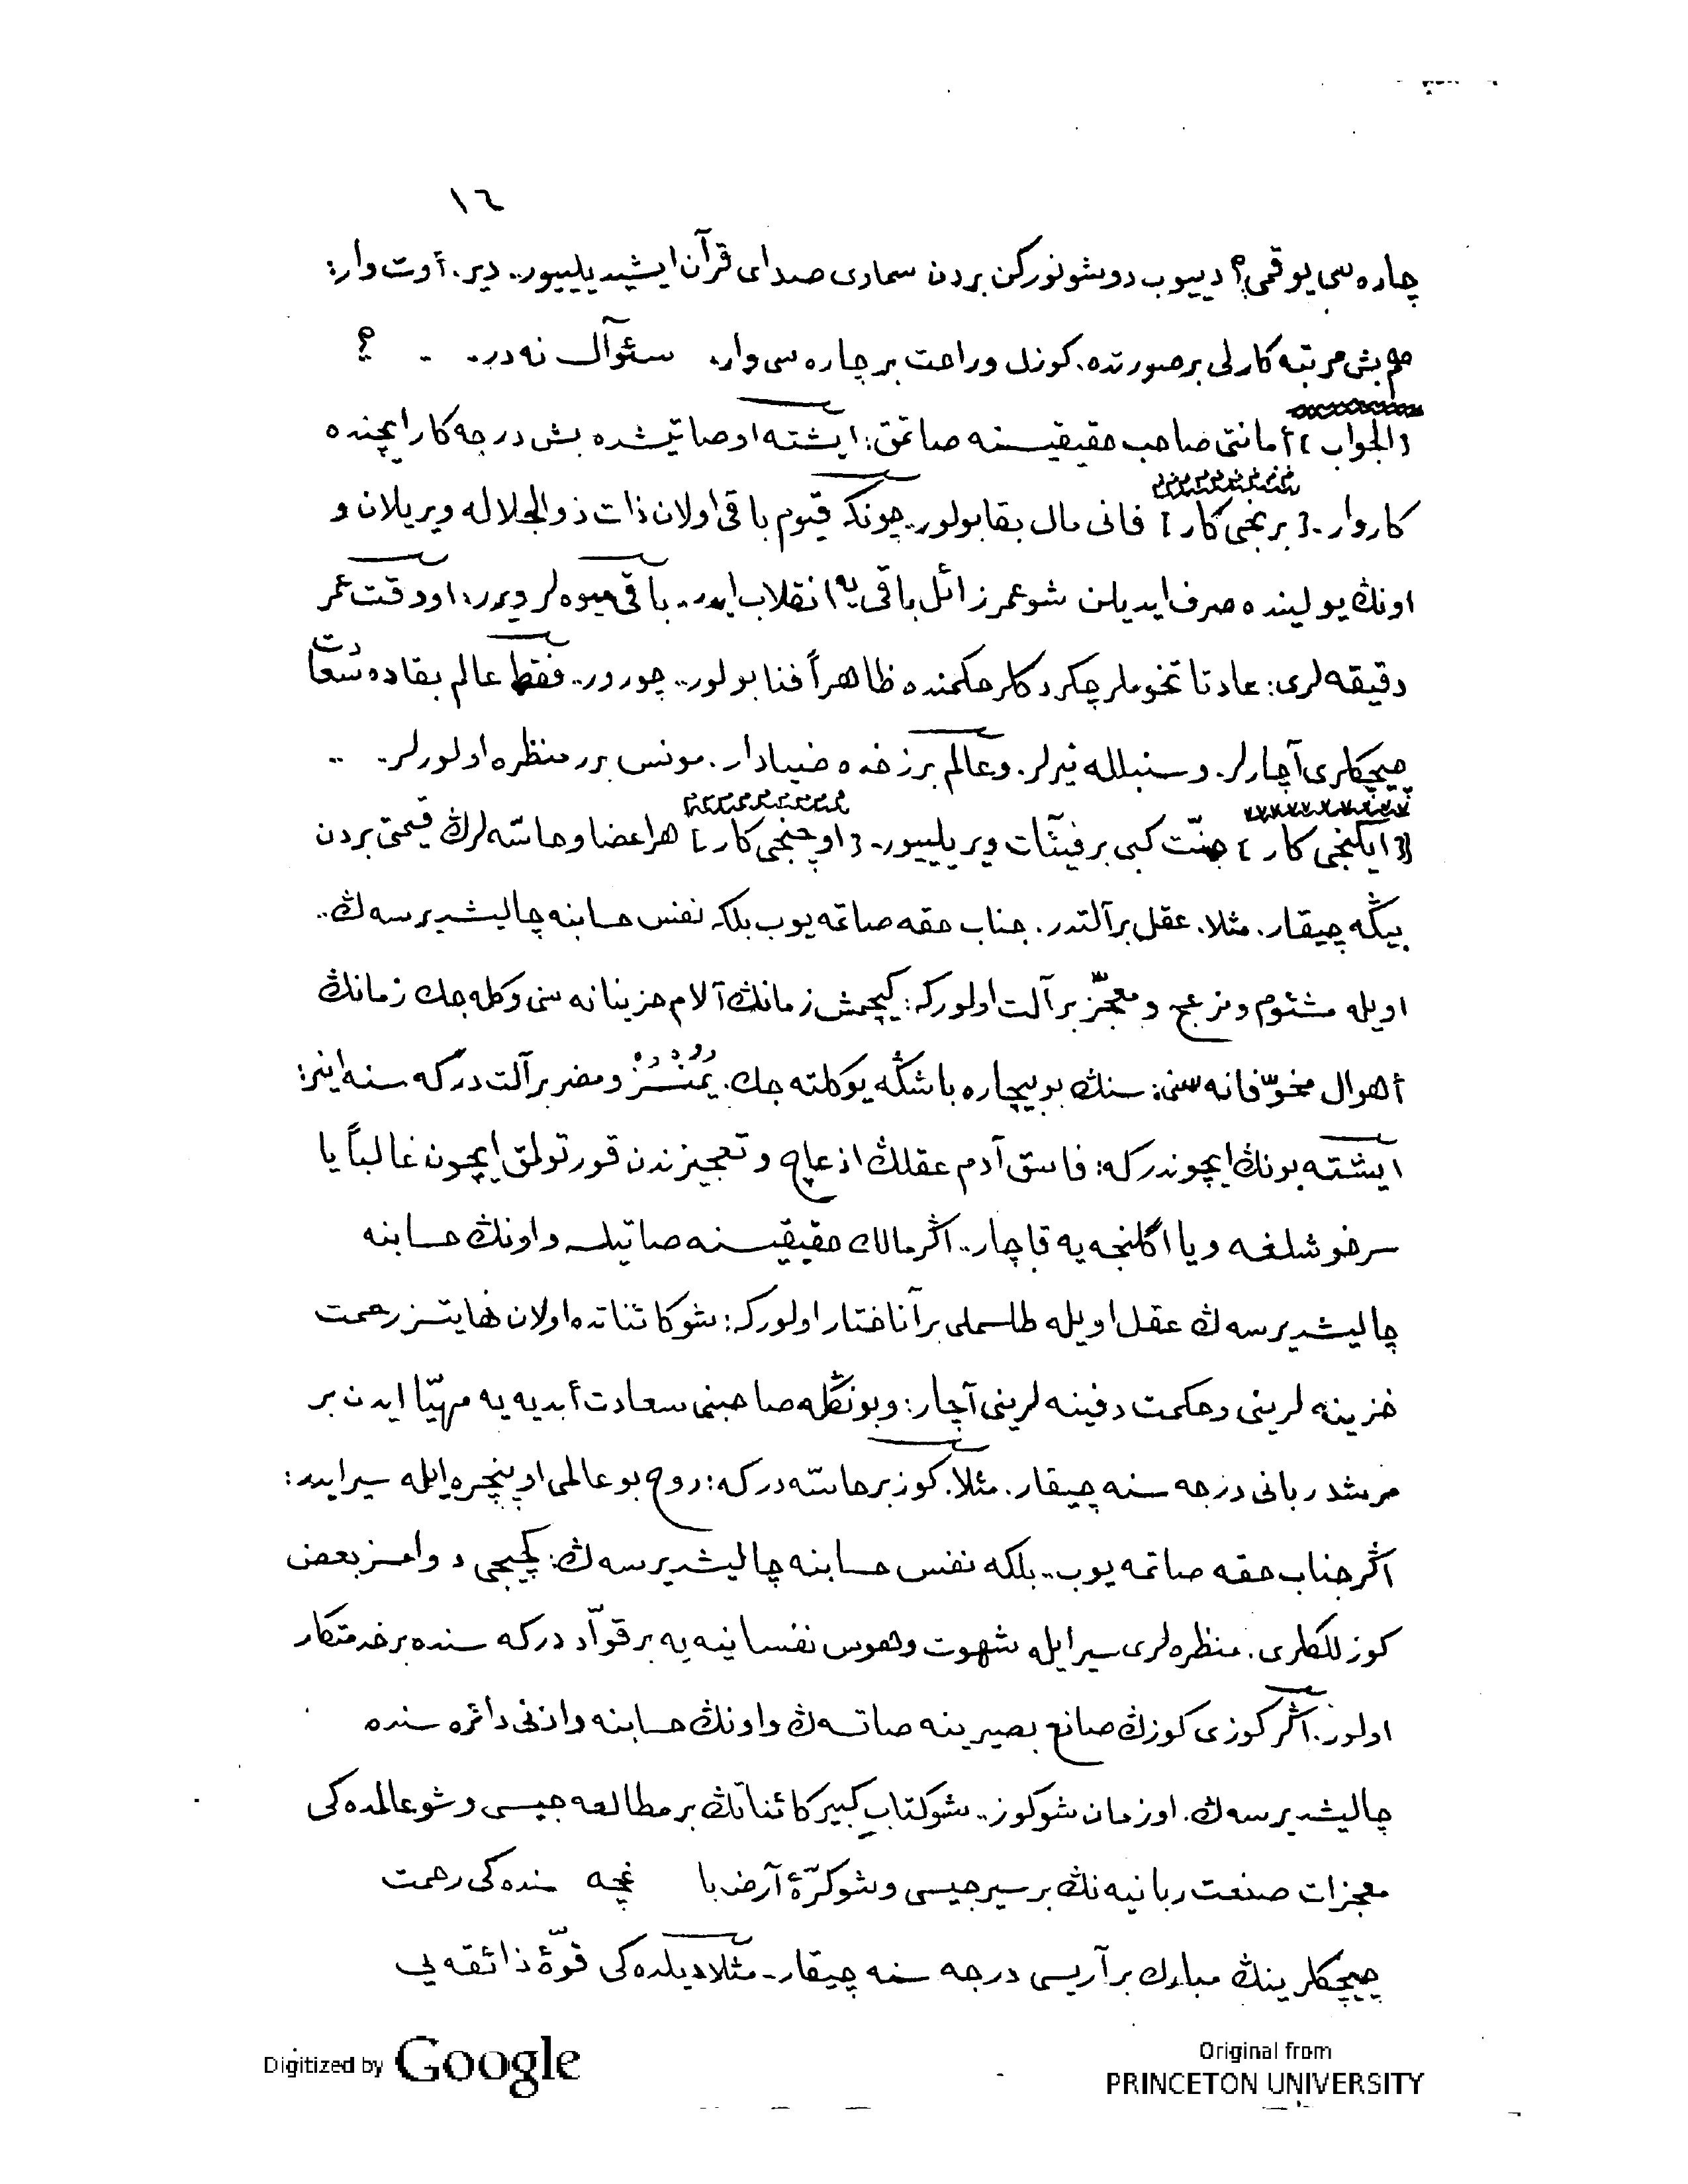 ١٦
چاره سی یوقمی؟ دییوب دوشونورکن بردن سماوی صدای قرآن ایشیدیلییور.. دیر. أوت وار:
هم بش مرتبه کارلی بر صورتده. کوزل و راحت بر چاره سی وار. سئوآل نه در.. .. ؟
﴿الجواب﴾ أمانتی صاحب حقیقیسنه صاتمق: ایشته او صاتیشده بش درجه کار ایچنده
کار وار. ﴿برنجی کار﴾ فانی مال بقا بولور.. چونکه قیّوم باقی اولان ذات ذوالجلاله ویریلان و
اونڭ یولینده صرف ایدیلن شو عمر زائل باقی یه انقلاب ایدر.. باقی میوه لر ویرر: او وقت عمر
دقیقه لری: عادتا تخوملر چکردکلر حکمنده ظاهراً فنا بولور.. چورور.. فقط عالم بقاده سعادت
چیچکلری آچارلر. و سنبللنیرلر. و عالم برزخده ضیادار. مونس برر منظره اولورلر. ..
﴿ایکنجی کار﴾ جنّت کبی بر فیئات ویریلییور. ﴿اوچنجی کار﴾ هر اعضا و حاسّه لرڭ قیمتی بردن
بیڭه چیقار. مثلا. عقل بر آلتدر. جناب حقه صاتمه یوب بلکه نفس حسابنه چالیشدیرسه ڭ..
اویله مشئوم و مزعج و معجّز بر آلت اولور که: کیچمش زمانڭ آلام حزینانه سنی و کله جك زمانڭ
أهوال مخوّفانه سنی: سنڭ بو بیچاره باشڭه یوکلته جك. یُمْنسُز و مضر بر آلت درکه سنه اینر:
ایشته بونڭ ایچوندر که: فاسق آدم عقلڭ ازعاج و تعجیزندن قورتولمق ایچون غالباً یا
سرخوشلغه و یا اگلنجه یه قاچار.. اڭر مالك حقیقیسنه صاتیلسه و اونڭ حسابنه
چالیشدیرسه ڭ عقل اویله طلسملی بر آناختار اولور که: شو کائناتده اولان نهایتسز رحمت
خزینه لرینی و حکمت دفینه لرینی آچار: و بونڭله صاحبنی سعادت أبدیه یه مهیّا ایدن بر
مرشد ربانی درجه سنه چیقار. مثلا. کوز بر حاسّه در که: روح بو عالمی او پنچره ایله سیر ایدر:
اڭر جناب حقه صاتمه یوب.. بلکه نفس حسابنه چالیشدیرسه ڭ: کچیجی دوامسز بعض
کوزللکلری. منظره لری سیر ایله شهوت و هوس نفسانیه یه بر قوّاد درکه سنده بر خدمتکار
اولور. اڭر کوزی کوزڭ صانع بصیرینه صاتسه ڭ و اونڭ حسابنه و اذنی دائره سنده
چالیشدیرسه ڭ. او زمان شو کوز.. شو کتابِ کبیر کائناتڭ بر مطالعه جیسی و شو عالمده کی
معجزات صنعت ربانیه نڭ بر سیرجیسی و شو کرّۀ آرض با غچه سنده کی رحمت
چیچکلرینڭ مبارك بر آریسی درجه سنه چیقار. مثلا دیلده کی قوّۀ ذائقه یی
Digitized by Google
Original from
PRINCETON UNIVERSITY